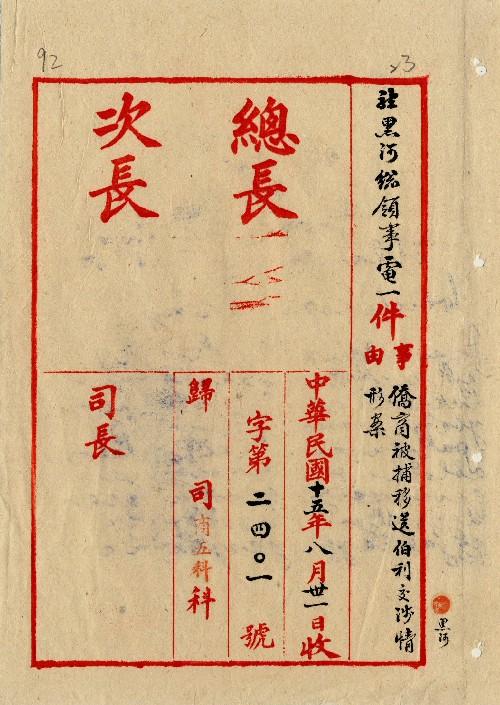 駐黑河總領事電一件
事由
僑商被捕移送伯利交涉情
形案
黑河
總長
次長
中華民國十五年八月卅一日收
字第二四〇一號
歸 司商五科科
司長
92
23